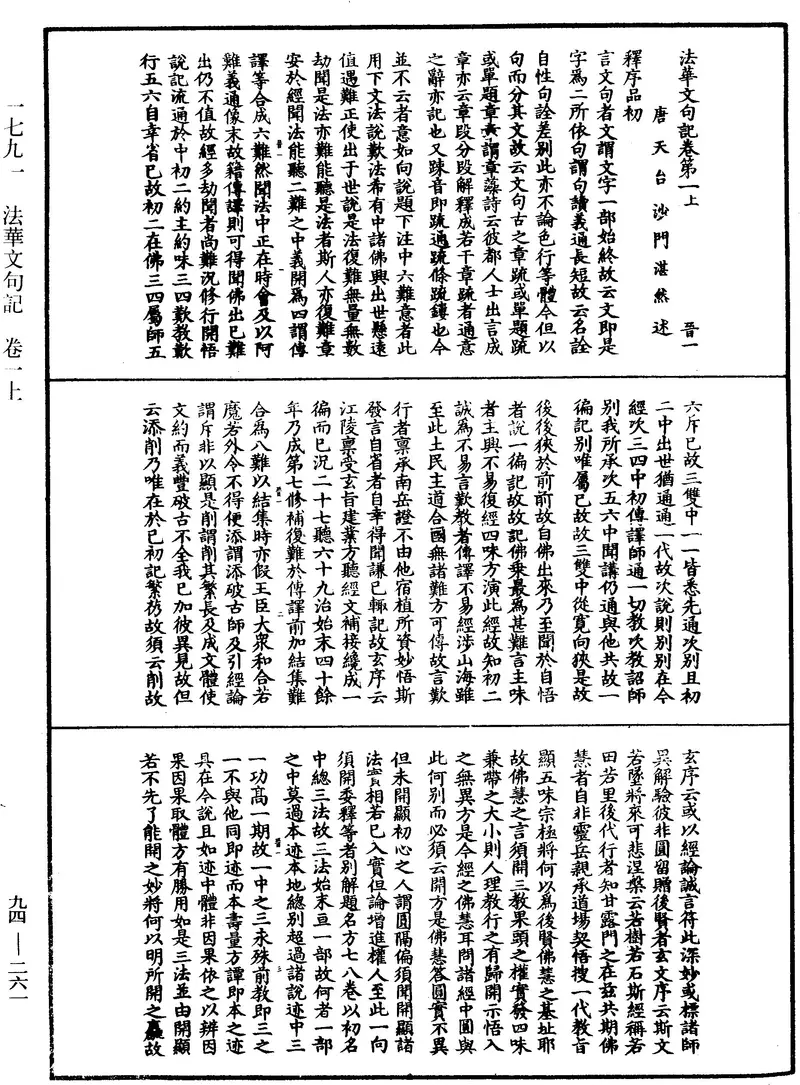 法華文句記卷第一上
唐天台沙門湛然述 晉一
釋序品初
言文句者文謂文字一部始終故云文即是
字為二所依句謂句讀義通長短故云名詮
自性句詮差別此亦不論色行等體今但以
句而分其文故云文句古之章疏或單題疏
或單題章章謂章藻詩云彼都人士出言成
章亦云章段分段解釋成若干章疏者通意
之辭亦記也又踈音即疏通疏條疏鏤也今
並不云者意如向說題下注中六難意者此
用下文法說歎法希有中諸佛興出世懸遠
值遇難正使出于世說是法復難無量無數
劫聞是法亦難能聽是法者斯人亦復難章
安於經聞法能聽二難之中義開為四謂傳
譯等合成六難然聞法中正在時會及以阿
難義通像末故藉傳譯則可得聞佛出已難
出仍不值故經多劫聞者尚難況修行開悟
說記流通於中初二約主約味三四歎教歎
行五六自幸省已故初二在佛三四屬師五
六斥已故三雙中一一皆悉先通次別且初
二中出世猶通通一代故次說則別別在今
經次三四中初傳譯師通一切教次教詔師
別我所承次五六中聞講仍通與他共故一
徧記別唯屬已故故三雙中從寬向狹是故
後後狹於前前故自佛出來乃至聞於自悟
者說一徧記故故記佛乘最為甚難言主味
者主興不易復經四味方演此經故知初二
誠為不易言歎教者傳譯不易經涉山海雖
至此土民主道合國無諸難方可傳故言歎
行者稟承南岳證不由他宿植所資妙悟斯
發言自省者自幸得開謙已輙記故玄序云
江陵稟受玄旨建業方聽經文補接纔成一
徧而已況二十七聽六十九治始末四十餘
年乃成第七修補復難於傳譯前加結集難
合為八難以結集時亦假王臣大衆和合若
魔若外今不得便添謂添破古師及引經論
謂斥非以顯是削謂削其繁長及成文體使
文約而義豐破古不全我已加彼異見故但
云添削乃唯在於已初記繁袴故須云削故
玄序云或以經論誠言符此深妙或標諸師
異解驗彼非圓留贈後賢者玄文序云斯文
若墜將來可悲涅槃云若樹若石斯經稱若
田若里後代行者知甘露門之在茲共期佛
慧者自非靈岳親承道場契悟搜一代教旨
顯五味宗極將何以為後賢佛慧之基址耶
故佛慧之言須開三教果頭之權實發四味
兼帶之大小則人理教行之有歸開示悟入
之無異方是今經之佛慧耳問諸經中圓與
此何別而必須云開方是佛慧答圓實不異
但未開顯初心之人謂圓隔偏須聞開顯諸
法實相若已入實但論增進權人至此一向
須開委釋等者別解題名方七八卷以初名
中總三法故三法始末亘一部故何者一部
之中莫過本迹本地總別超過諸說迹中三
一功高一期故一中之三永殊前教即三之
一不與他同即迹而本壽量方譚即本之迹
具在今說且如迹中體非因果依之以辨因
果因果取體方有勝用如是三法並由開顯
若不先了能開之妙將何以明所開之麤故
一七九一 法華文句記 卷一上
九四—二六一